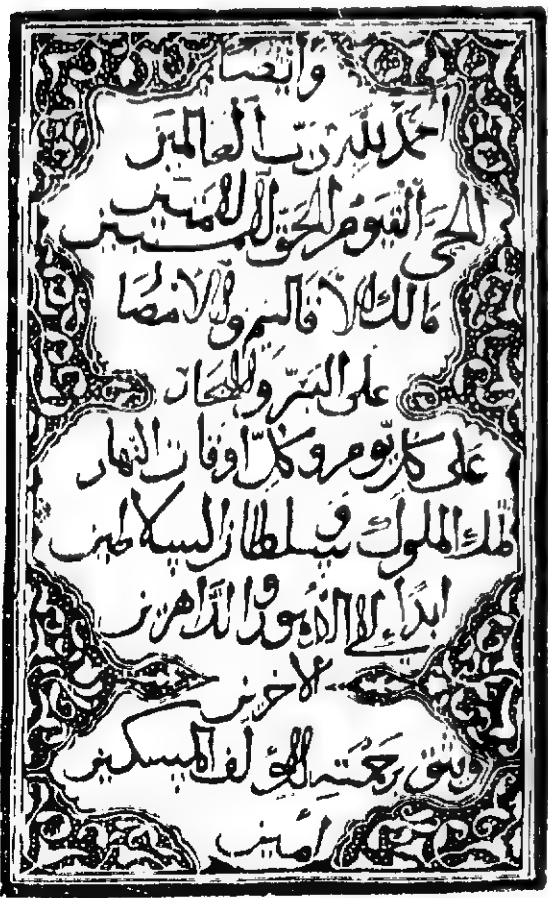 وايضا
احمد لله رب العالمين
الحي القيوم الحق الامين
مالك الاقاليم والامصار
على البر والبحار
على كل يوم وكل اوقات النهار
ملك الملوك وسلطان السلاطين
ابداء والداهرين
الاخرين
رحمته المولف المسكين
امين